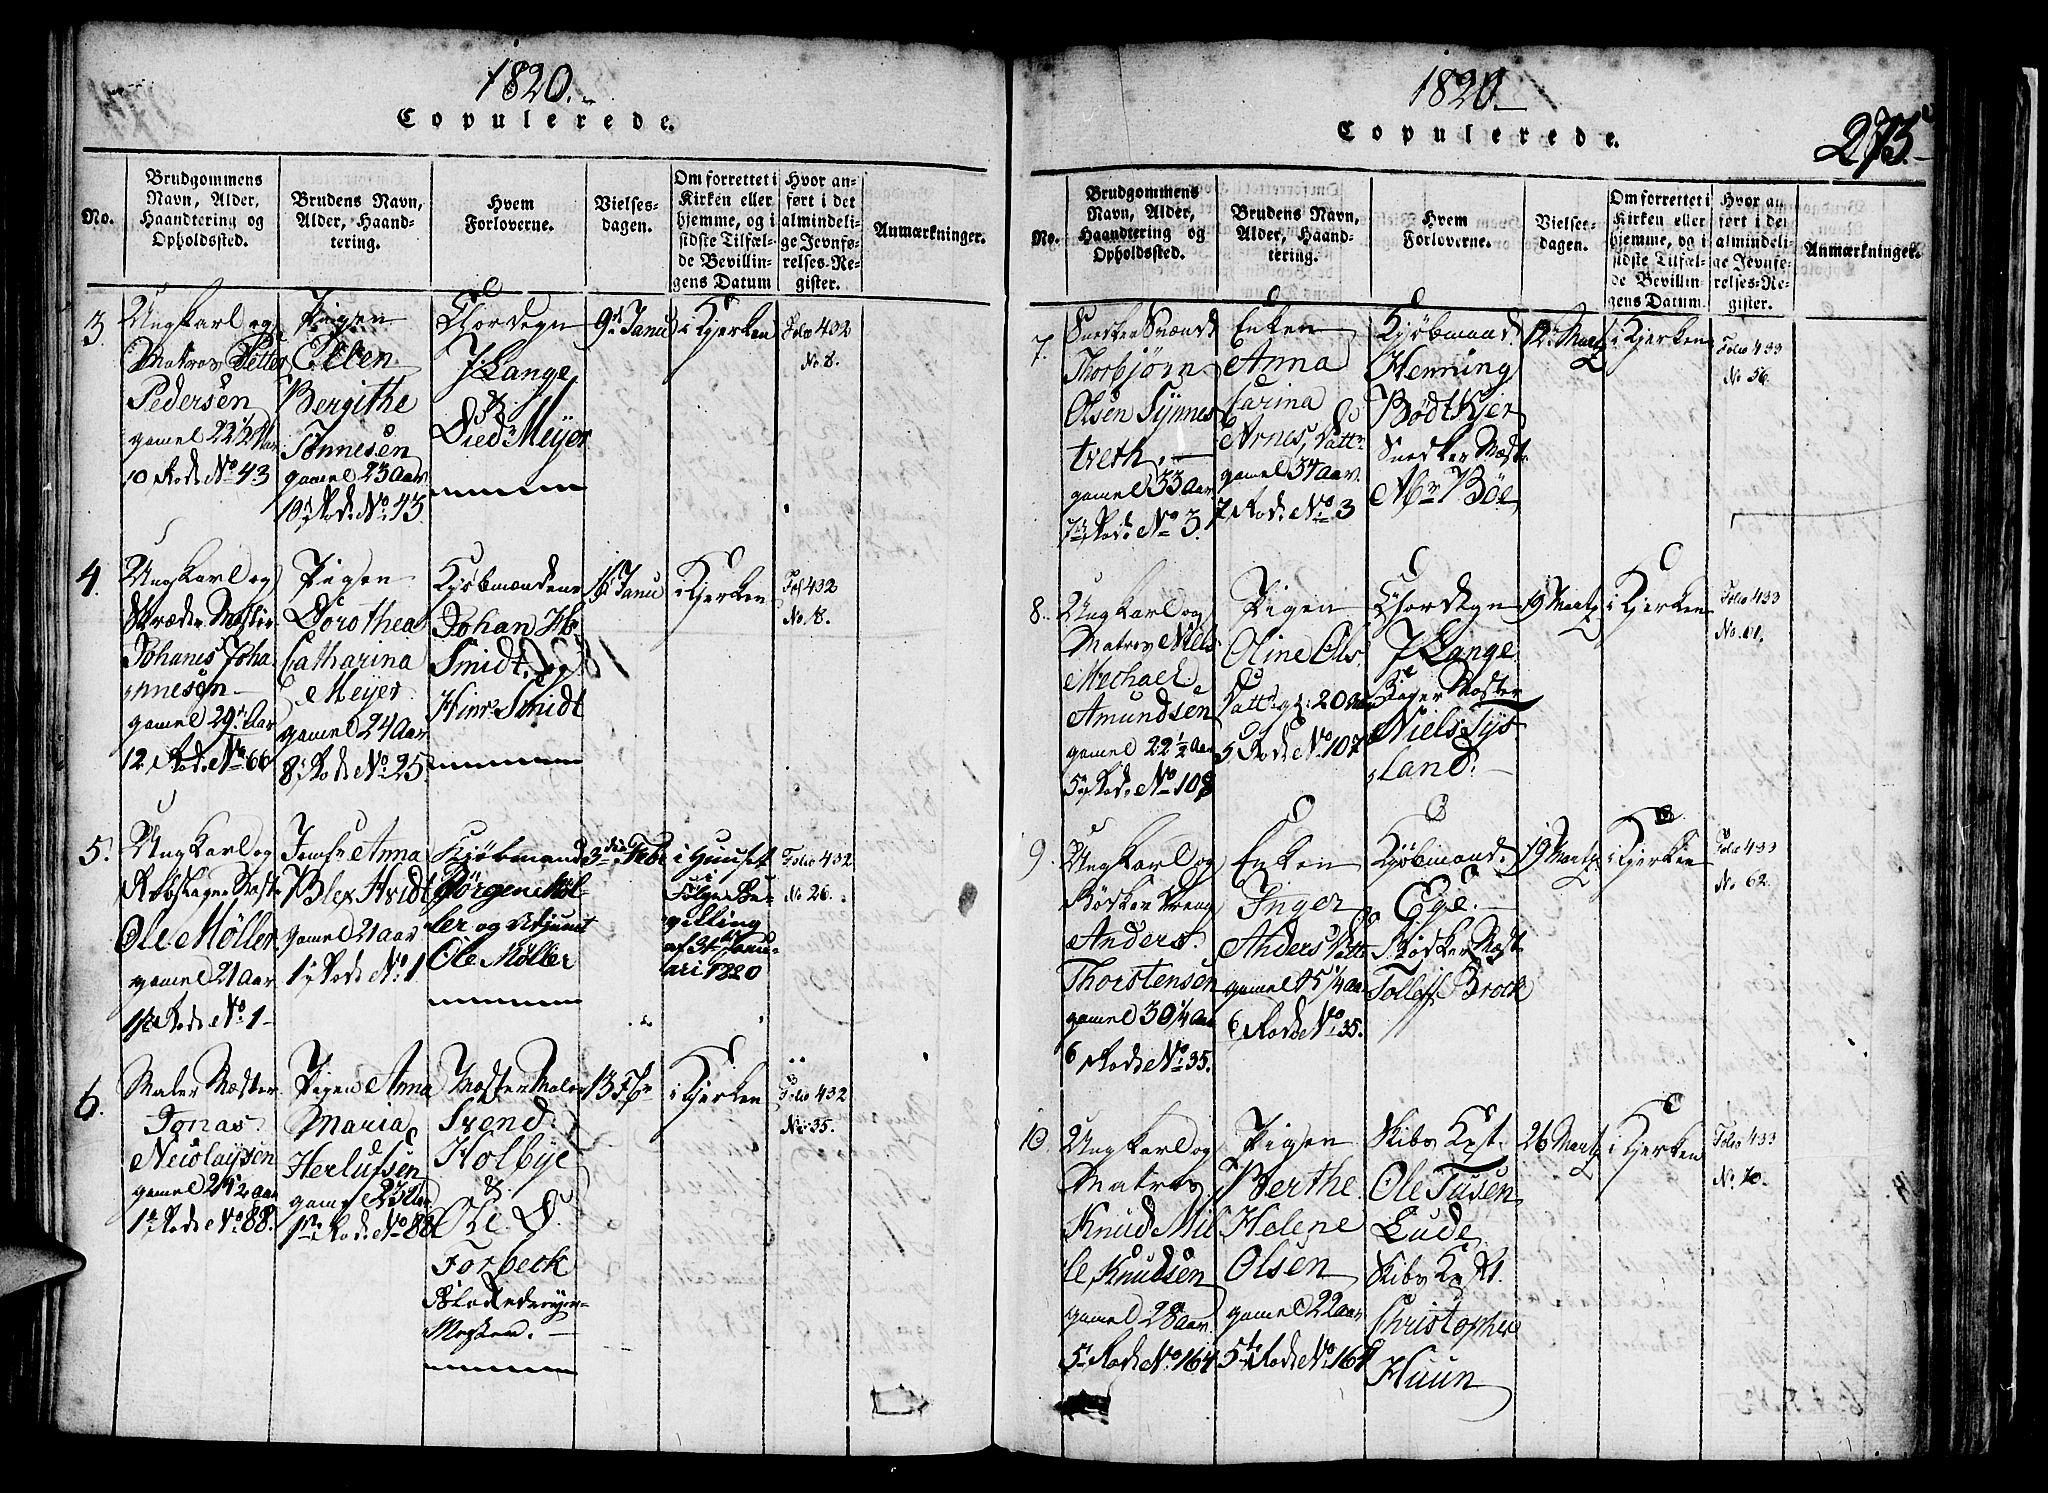 1820.
Copulerede.
No.
Brudgommens
Navn, Alder,
Haandtering og
Opholdssted.
Brudens Navn,
Alder, Haand-
tering.
Hvem
Forloverne.
Vielses-
dagen.
Om forrettet i
Kirken eller
hjemme, og i
sidste Tilfæl-
de Bevillin-
gens Datum
Hvor an-
ført i det
almindeli-
ge Jevnfø-
relses-Re-
gister.
Anmærkninger.
3.
Ungkarl og
Matros Petter
Pedersen
gamel 22 1/2 Aar
10 Rode No 43
Pigen
Elen
Bergithe
Tönnesen
gamel 23 Aar
10 Rode No 43.
Chordegn
J Lange
&
Died. Meyer
9de Janu
i Kjerken
Folio 432
No 8.
4.
Ungkarl og
Skræder Mester
Johanes Joha
nnesen
gamel 29 Aar
12 Rode No 66
Pigen
Dorothea
Catharina
Meyer
gamel 24 Aar
8 Rode No 25
Kjöbmændene
Johan Hs.
Smidt, og
Hinr. Smidt
16 Janu
i Kjerken
Fol 432
No 18.
5.
Ungkarl og
Rebslager Mester
Ole Möller
gamel 21 aar
1ste Rode No 1
Jomfr Anna
Blex Hvidt
gamel 21 aar
1 Rode No 1
Kjöbmand
Jörgen Möl-
ler og Adjunct
Ole Möller
3die Febr
i Huuset
i
Fölge Be-
villing
af 31 Janu-
ari 1820
Folio 432
No 26.
6.
Maler Mester
Jonas
Nicolaysen
gamel 24 1/2 aar
1te Rode No 88.
Pigen Anna
Maria
Herlufsen
gamel 23 Aar
1ste Rode No 88
Mester Maler
Svend
Holbye
&
Ole D.
Torbeck
Mester.
13 Febr
i Kjerken
Folio 432
No 35.
1820.
Copulerede.
275
No.
Brudgommens
Navn, Alder,
Haandtering og
Opholdssted.
Brudens Navn,
Alder, Haand-
tering.
Hvem
Forloverne.
Vielses-
dagen.
Om forrettet i
Kirken eller
hjemme, og i
sidste Tilfæl-
de Bevillin-
gens Datum.
Hvor an
ført i det
almindeli-
ge Jevnfø-
relses-Re-
gister.
Anmærkninger.
7.
Snedker Svend
Thorbjörn
Olsen Synnes
tveth,
gamel 33 Aar
7de Rode No 3.
Enken
Anna
Carina
Arnes Datter
gamel 34 Aar
7 Rode No 3
Kjöbmand
Henning
Bödtkjer
Snedker Mest.
Böe
12 Martz
i Kjerken
Folio 433
No 56.
8.
Ungkarl og
Matros Niels
Michael
Amundsen
gamel 22 1/2 Aar
5 Rode No 108
Pigen
Oline Ols
Datter gl. 20 Aar
5 Rode No 107
Chordegn
J Lange
Bager Mester
Niels Tys
land.
19 Martz
i Kjerken
Folio 433
No. 61.
9.
Ungkarl og
Bödker Dreng
Anders
Thorstensen
gamel 30 1/4 Aar
6 Rode No 35.
Enken
Inger
Anders Datter
gamel 45 1/4 aar
6 Rode No 35.
Kjöbmand
Ege.
Bödker Mest.
Tollef Brock
19 Martz
i Kjerken
Folio 433
No 62.
10.
Ungkarl og
Matros
Knud Mil
le Knudsen
gamel 28 aar
5 Rode No 164
Pigen
Berthe
Helene
Olsen
gamel 22 aar
5te Rode No 164
Skibs Capt.
Ole Tusen
Lude
Skibs Capt.
Christopher
Huun
26 Martz
i Kjerken
Folio 433
No 70.